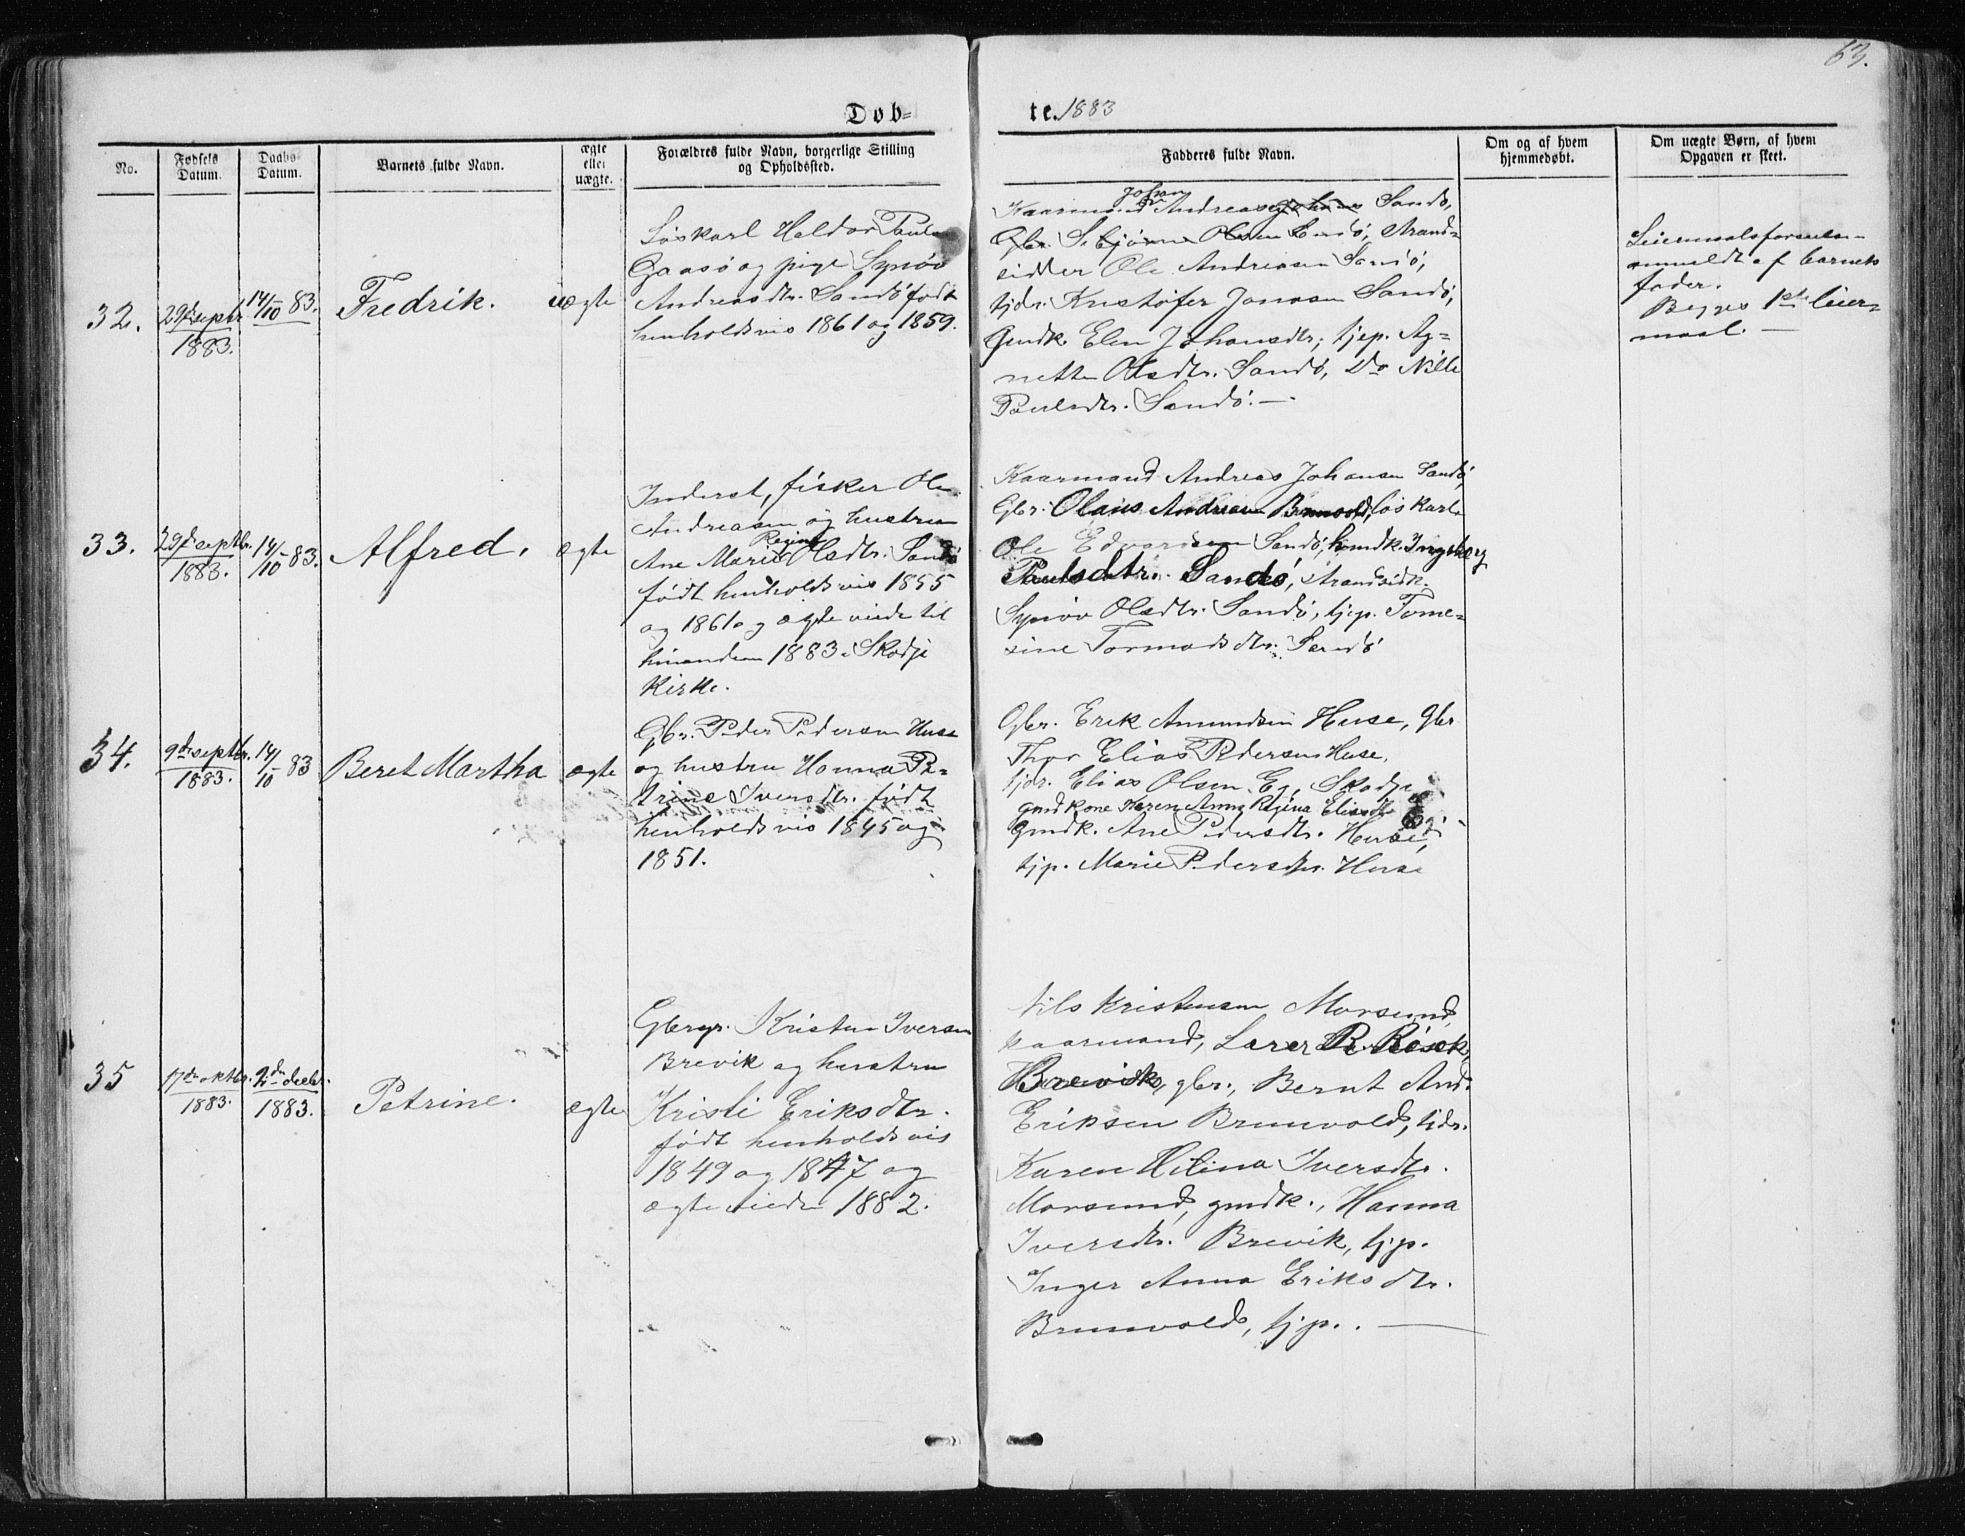 63.
Døb=
te. 1883
No.
Fødsels Datum.
Daabs Datum.
Barnets fulde Navn.
ægte eller uægte.
Forældres fulde Navn, borgerlige Stilling og Opholdssted.
Fadderes fulde Navn.
Om og af hvem hjemmedøbt.
Om uægte Børn, af hvem Opgaven er skeet.
32.
29de septbr
1883.
14/10 83.
Fredrik.
uægte
Løskarl Haldor Pauls
Gaasø og pige Synøv
Andreasdtr. Sandø født
henholdsvis 1861 og 1859.
Johan
Kaarmand Andreas Johans Sandø,
Gbr. Olsen Sandø, Strand=
sidder Ole Andreasen Sandø,
tjdr. Kristofer Jonasen Sandø,
Gmdk. Elen Johansdtr, tjep. Ag=
nette Olsdtr. Sandø, Do Nille
Paulsdtr. Sandø. —
Leiermaalsforseelse
anmeldt af barnets
fader.
Begges 1ste leier=
maal. —
33.
29de septbr.
1883.
14/10 83.
Alfred.
ægte
Inderst, fisker Ole
Andreasen og hustru
Regine
Ane Marie Olsdtr. Sandø
født henholdsvis 1855
og 1861 og ægteviede til
hinanden 1883 i Skodje
Kirke.
Kaarmand Andreas Johansen Sandø,
Gbr. Olaus Andreasen Brunvold, løskarl
Ole Edvardsen Sandø, hmdk. Ingeborg
Paulsdtr. Sandø, strandsidk.
Synøv Olsdtr. Sandø, tjep. Tome=
sine Tormodsdtr. Sandø
34.
9de septbr.
1883.
14/10 83
Beret Martha
ægte
Gbr. Peder Pedersen Huse
og hustru Hanna Pe=
trine Iversdtr. født
henholdsvis 1845 og
1851.
Gbr. Erik Amundsen Huse, gbr
Thor Elias Pedersen Huse,
tjdr. Elias Olsen Eg, Skodje
gmdkone Karen Anne Regina Eliasdtr Eg
gmdk. Ane Pedersdtr. Huse,
tjp. Marie Pedersdtr. Huse
35
17de oktbr.
1883.
2den decbr.
1883.
Petrine.
ægte
Gbrgr. Kristen Iversen
Brevik og hustru
Kristi Eriksdtr.
født henholdsvis
1849 og 1847 og
ægteviede 1882.
Nils Kristensen Morsund,
kaarmand, Lars R. Røsok,
Brevik, gbr., Bernt And.
Eriksen Brunvold, tjdr.
Karen Helina Iversdtr.
Morsund, gmdk., Hanna
Iversdtr. Brevik, tjp.
Inger Anna Eriksdtr.
Brunvold, tjp. . —